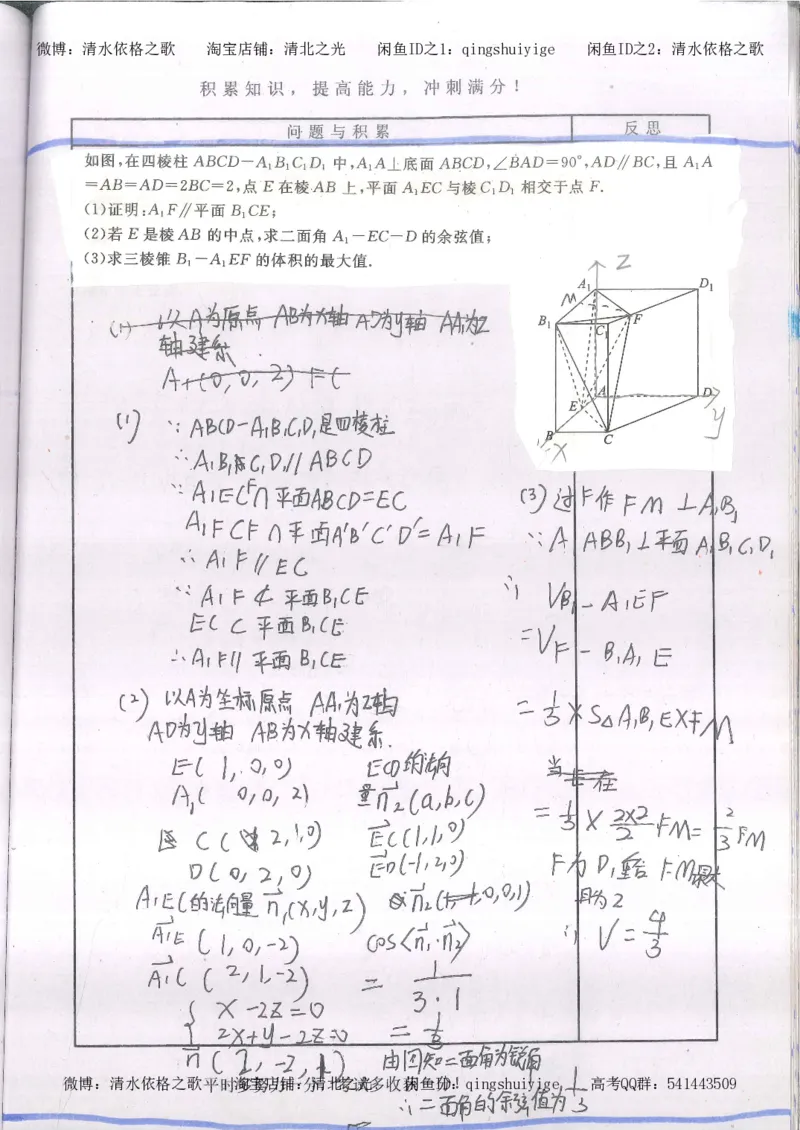 微博：清水依格之歌 淘宝店铺：清北之光 闲鱼ID之1：qingshuiyige 闲鱼ID之2：清水依格之歌
积累知识，提高能力，冲刺满分！
问题与积累 反思
如图,在四棱柱 ABCD－A₁B₁C₁D₁ 中,A₁A⊥底面 ABCD,∠BAD=90°,AD∥BC,且 A₁A
=AB=AD=2BC=2,点 E 在棱 AB 上,平面 A₁EC 与棱 C₁D₁ 相交于点 F.
(1)证明:A₁F∥平面 B₁CE;
(2)若 E 是棱 AB 的中点,求二面角 A₁－EC－D 的余弦值;
(3)求三棱锥 B₁－A₁EF 的体积的最大值.
Z
A₁ D₁
M
B₁ C₁ F
A D
E y
B C
x
(1) 以A为原点 AB为x轴 AD为y轴 AA₁为z
轴建系
A₁(0,0,2) F(
(1) ∵ABCD-A₁B₁C₁D₁是四棱柱
∴A₁B₁C₁D₁//ABCD
∵A₁ECF∩平面ABCD=EC
A₁FCF∩平面A'B'C'D'=A₁F
∴A₁F//EC
∵A₁F⊄平面B₁CE
EC⊂平面B₁CE
∴A₁F//平面B₁CE
(2) 以A为坐标原点 AA₁为z轴
AD为y轴 AB为x轴建系.
E(1,0,0)
A₁(0,0,2)
C(2,1,0)
D(0,2,0)
A₁EC的法向量n₁(x,y,z)
A₁E(1,0,-2)
A₁C(2,1,-2)
{ x-2z=0
2x+y-2z=0
n(2,-2,1)
ECD的法向
量n₂(a,b,c)
EC(1,1,0)
ED(-1,2,0)
n₂(0,0,1)
cos<n₁·n₂>
= 1/3·1
= 1/3
由图知二面角为锐角
∴二面角的余弦值为1/3
(3) 过F作FM⊥A₁B₁
∵A₁ABB₁⊥平面A₁B₁C₁D₁
∴ VB₁-A₁EF
=VF-B₁A₁E
=1/3×S△A₁B₁E×FM
当 在
=1/3×2×2/2 FM=2/3FM
F为D₁重合 FM最大
且为2
∴V=4/3
微博：清水依格之歌 淘宝店铺：清北之光 闲鱼ID：qingshuiyige 高考QQ群：541443509